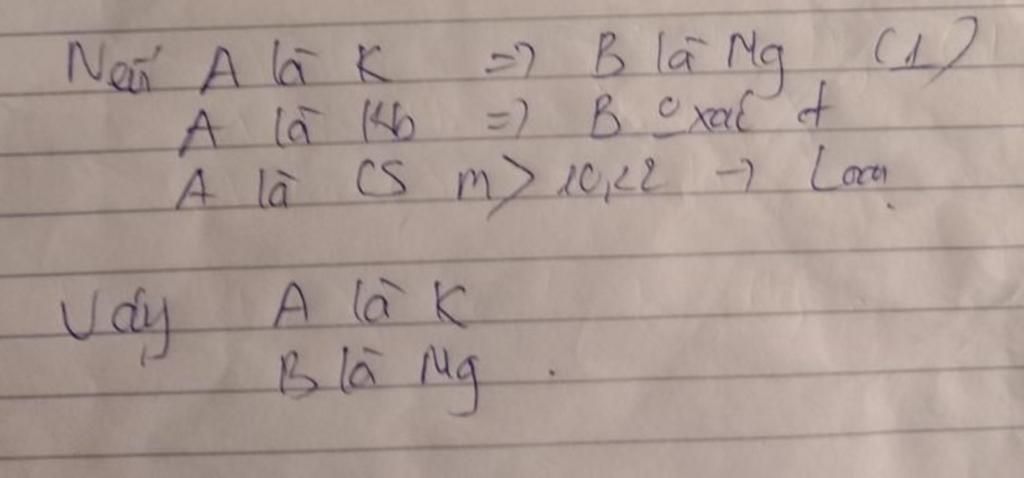 Nếu A là K => B là Mg (1)
A là Rb => B 0 xác đ
A là CS m > 10,22 → Loại
Vậy A là K
B là Mg .